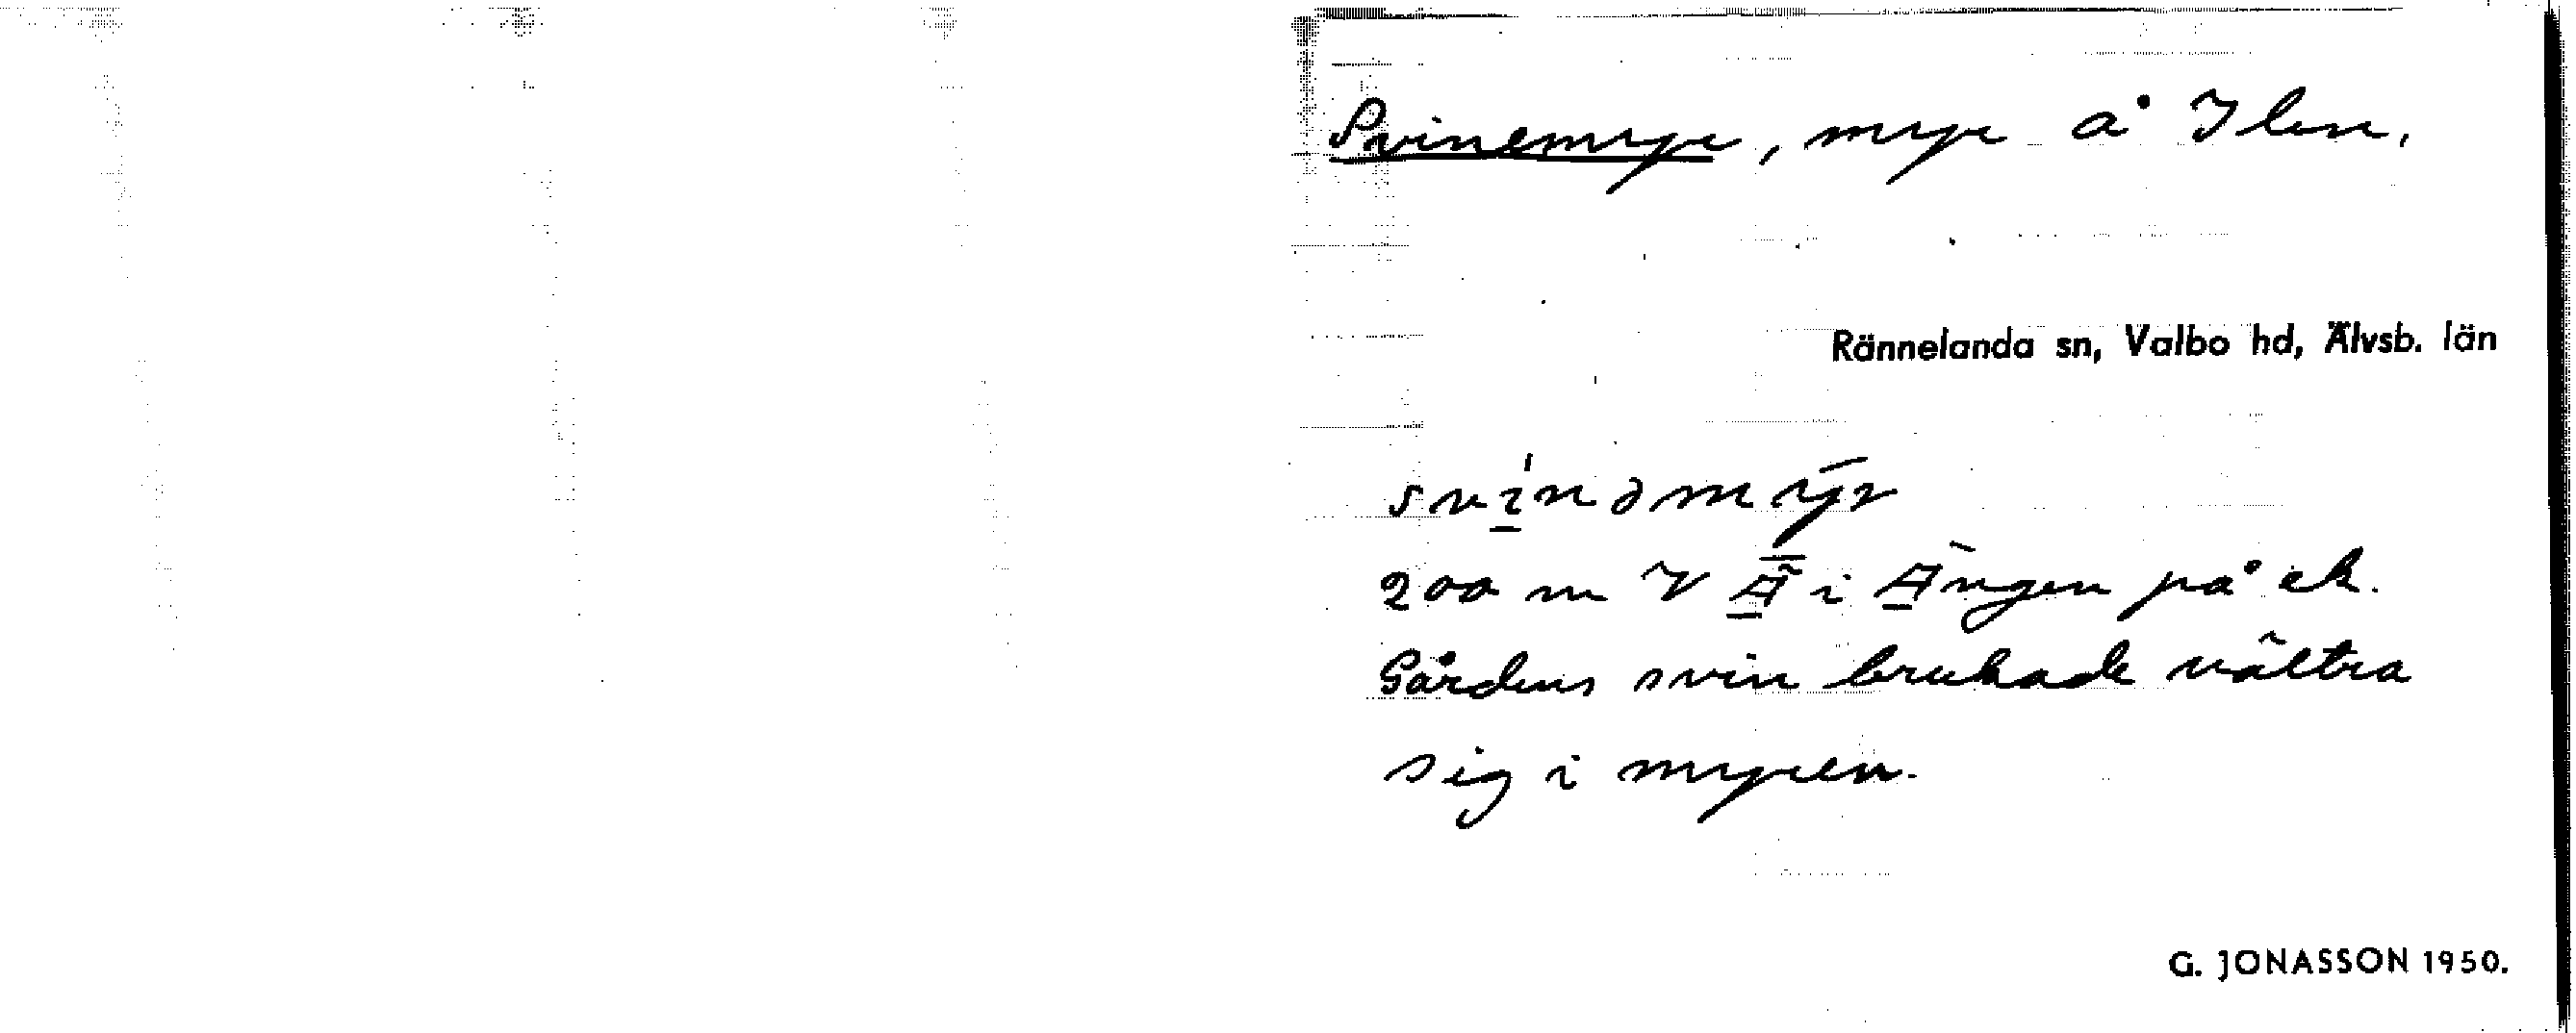 Svinemyr, myr å Ilen.
Rännelanda sn, Valbo hd, Älvsb. län
svínəmȳr
200 m V Ä i Ängen på ek.
Gårdens svin brukade vältra
sig i myren.
G. JONASSON 1950.